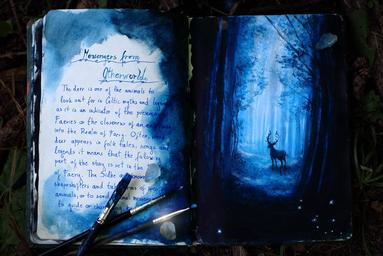 Messengers from
Otherworld
The deer is one of the animals to
look out for in Celtic myths and legends
as it is an indicator of the presence
Faeries or the closeness of an
into the Realm of Faery. Often,
deer appears in folk tales, songs and
legends it means that the following
part of the story is set in the
of Faery. The Sidhe
shapeshifters and take forms of
animals, or to send
to guide or